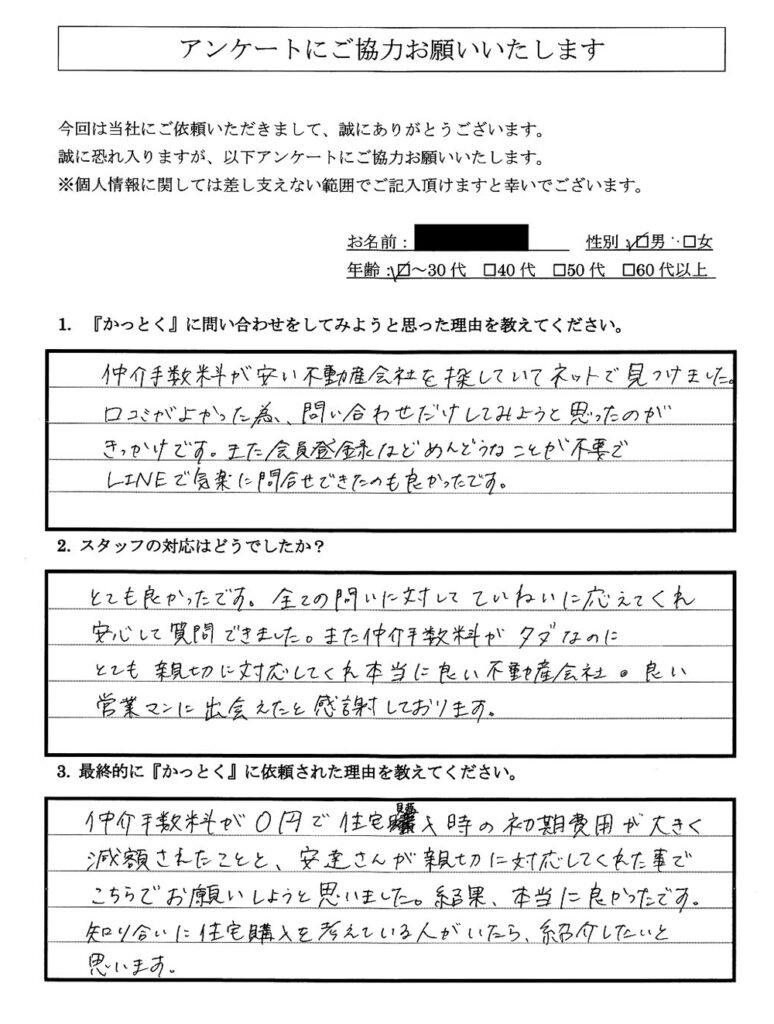 アンケートにご協力お願いいたします
今回は当社にご依頼いただきまして、誠にありがとうございます。
誠に恐れ入りますが、以下アンケートにご協力お願いいたします。
※個人情報に関しては差し支えない範囲でご記入頂けますと幸いでございます。
お名前: 性別:☑男・□女
年齢:☑～30代 □40代 □50代 □60代以上
1. 『かっとく』に問い合わせをしてみようと思った理由を教えてください。
仲介手数料が安い不動産会社を探していてネットで見つけました。
口コミがよかった為、問い合わせだけしてみようと思ったのが
きっかけです。また会員登録などめんどうなことが不要で
LINEで気楽に問合せできたのも良かったです。
2. スタッフの対応はどうでしたか？
とても良かったです。全ての問いに対してていねいに応えてくれ
安心して質問できました。また仲介手数料がタダなのに
とても親切に対応してくれ本当に良い不動産会社。良い
営業マンに出会えたと感謝しております。
3. 最終的に『かっとく』に依頼された理由を教えてください。
仲介手数料が0円で住宅購入時の初期費用が大きく
減額されたことと、安達さんが親切に対応してくれた事で
こちらでお願いしようと思いました。結果、本当に良かったです。
知り合いに住宅購入を考えている人がいたら、紹介したいと
思います。